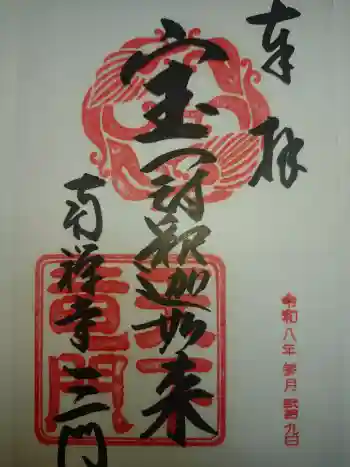 奉拝
宝冠釈迦如来
南禅寺三門
令和八年 参月 弐拾九日